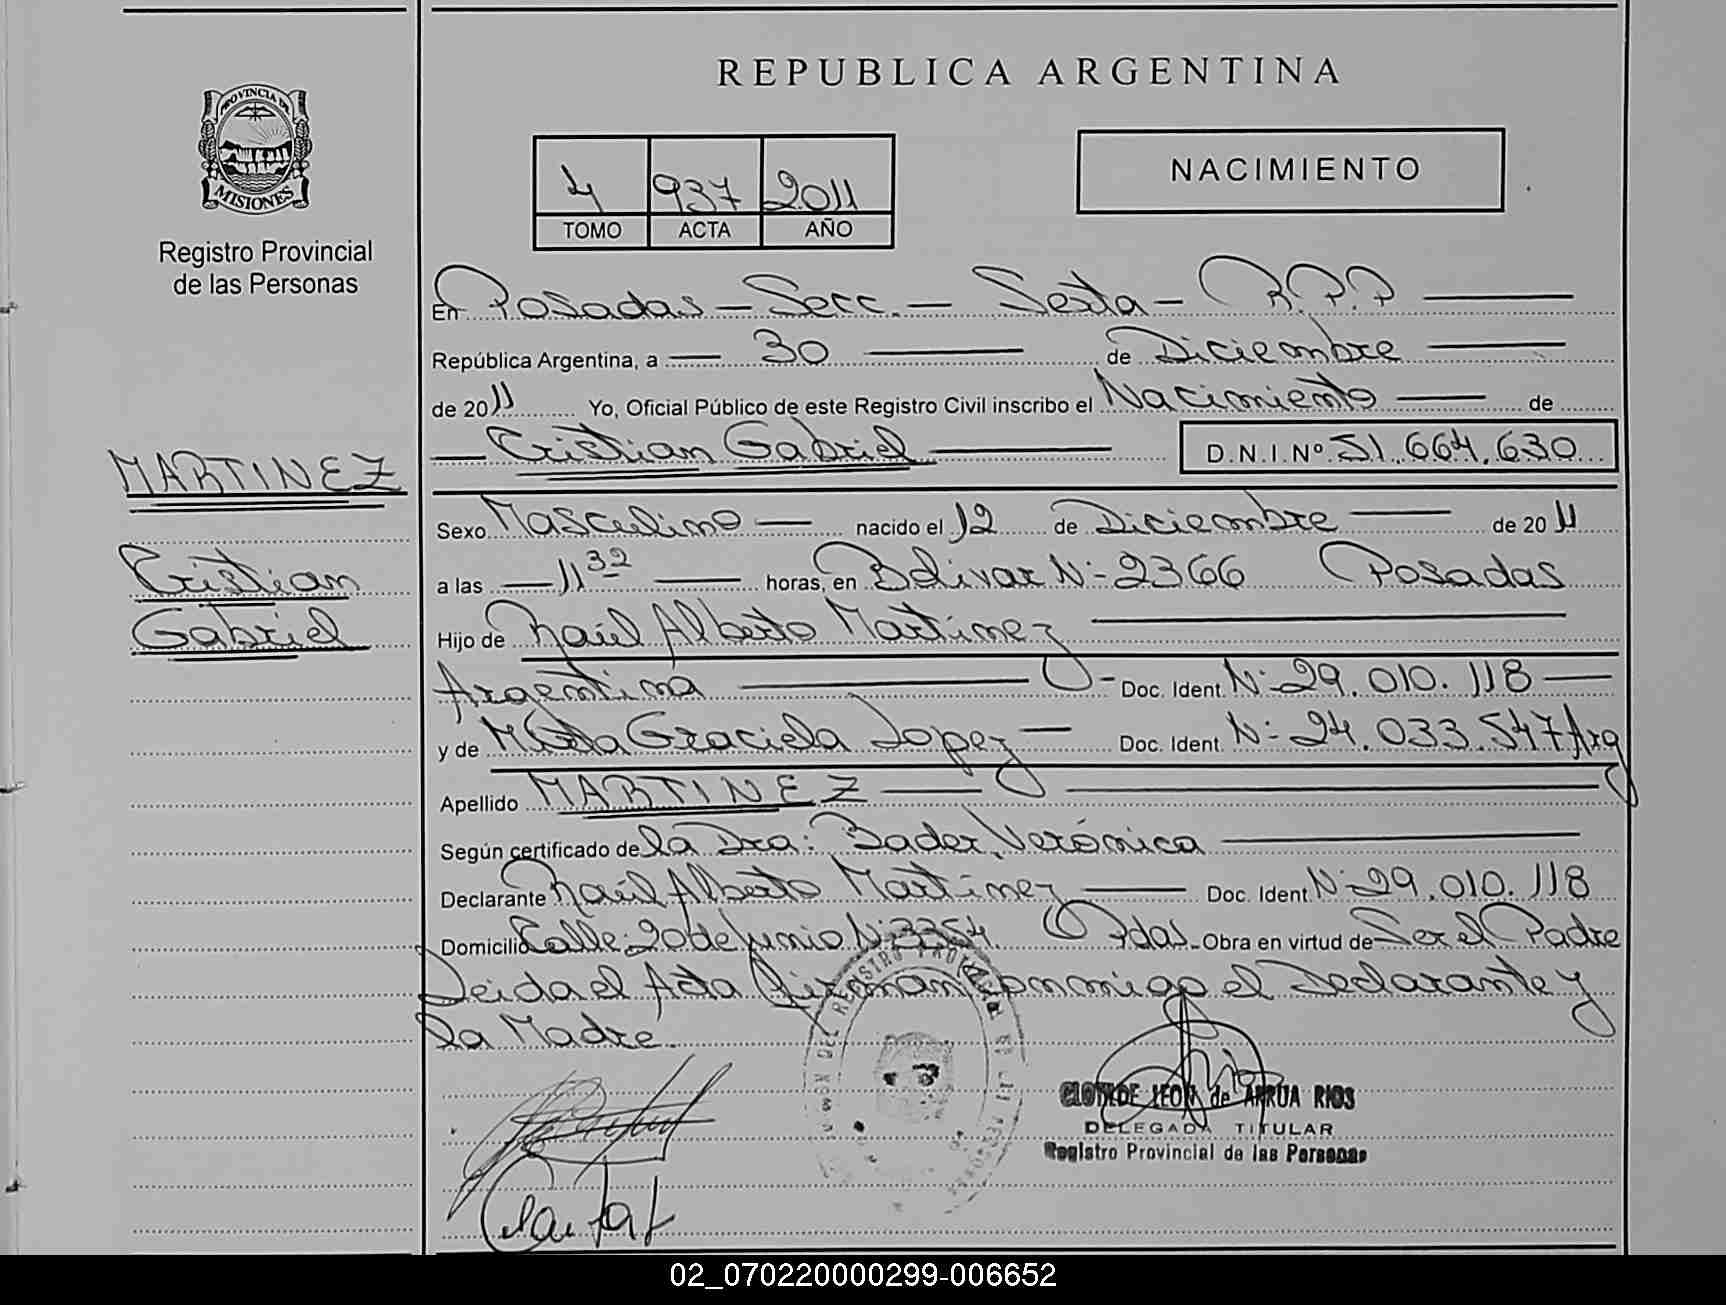 PROVINCIA DE
MISIONES
Registro Provincial
de las Personas
MARTINEZ
Cristian
Gabriel
REPUBLICA ARGENTINA
4 937 2011
TOMO ACTA AÑO
NACIMIENTO
En Posadas - Secc. - Sexta - R.P.P
República Argentina, a 30 de Diciembre
de 2011 Yo, Oficial Público de este Registro Civil inscribo el Nacimiento de
Cristian Gabriel D.N.I.Nº 51.664.630
Sexo Masculino nacido el 12 de Diciembre de 2011
a las 11 32 horas, en Bolivar Nº 2366 Posadas
Hijo de Raúl Alberto Martinez
Argentina Doc. Ident. Nº 29.010.118
y de Graciela Lopez Doc. Ident. Nº 24.033.547 Arg
Apellido MARTINEZ
Según certificado de la Dra: Bader, Verónica
Declarante Raúl Alberto Martinez Doc. Ident. Nº 29.010.118
Domicilio Calle: 20 de Junio Nº 3354. Pdas. Obra en virtud de Ser el Padre
Leida el Acta Firman conmigo el Declarante y
la Madre.
CLOTILDE LEON de ARRUA RIOS
DELEGADA TITULAR
Registro Provincial de las Personas
02_070220000299-006652